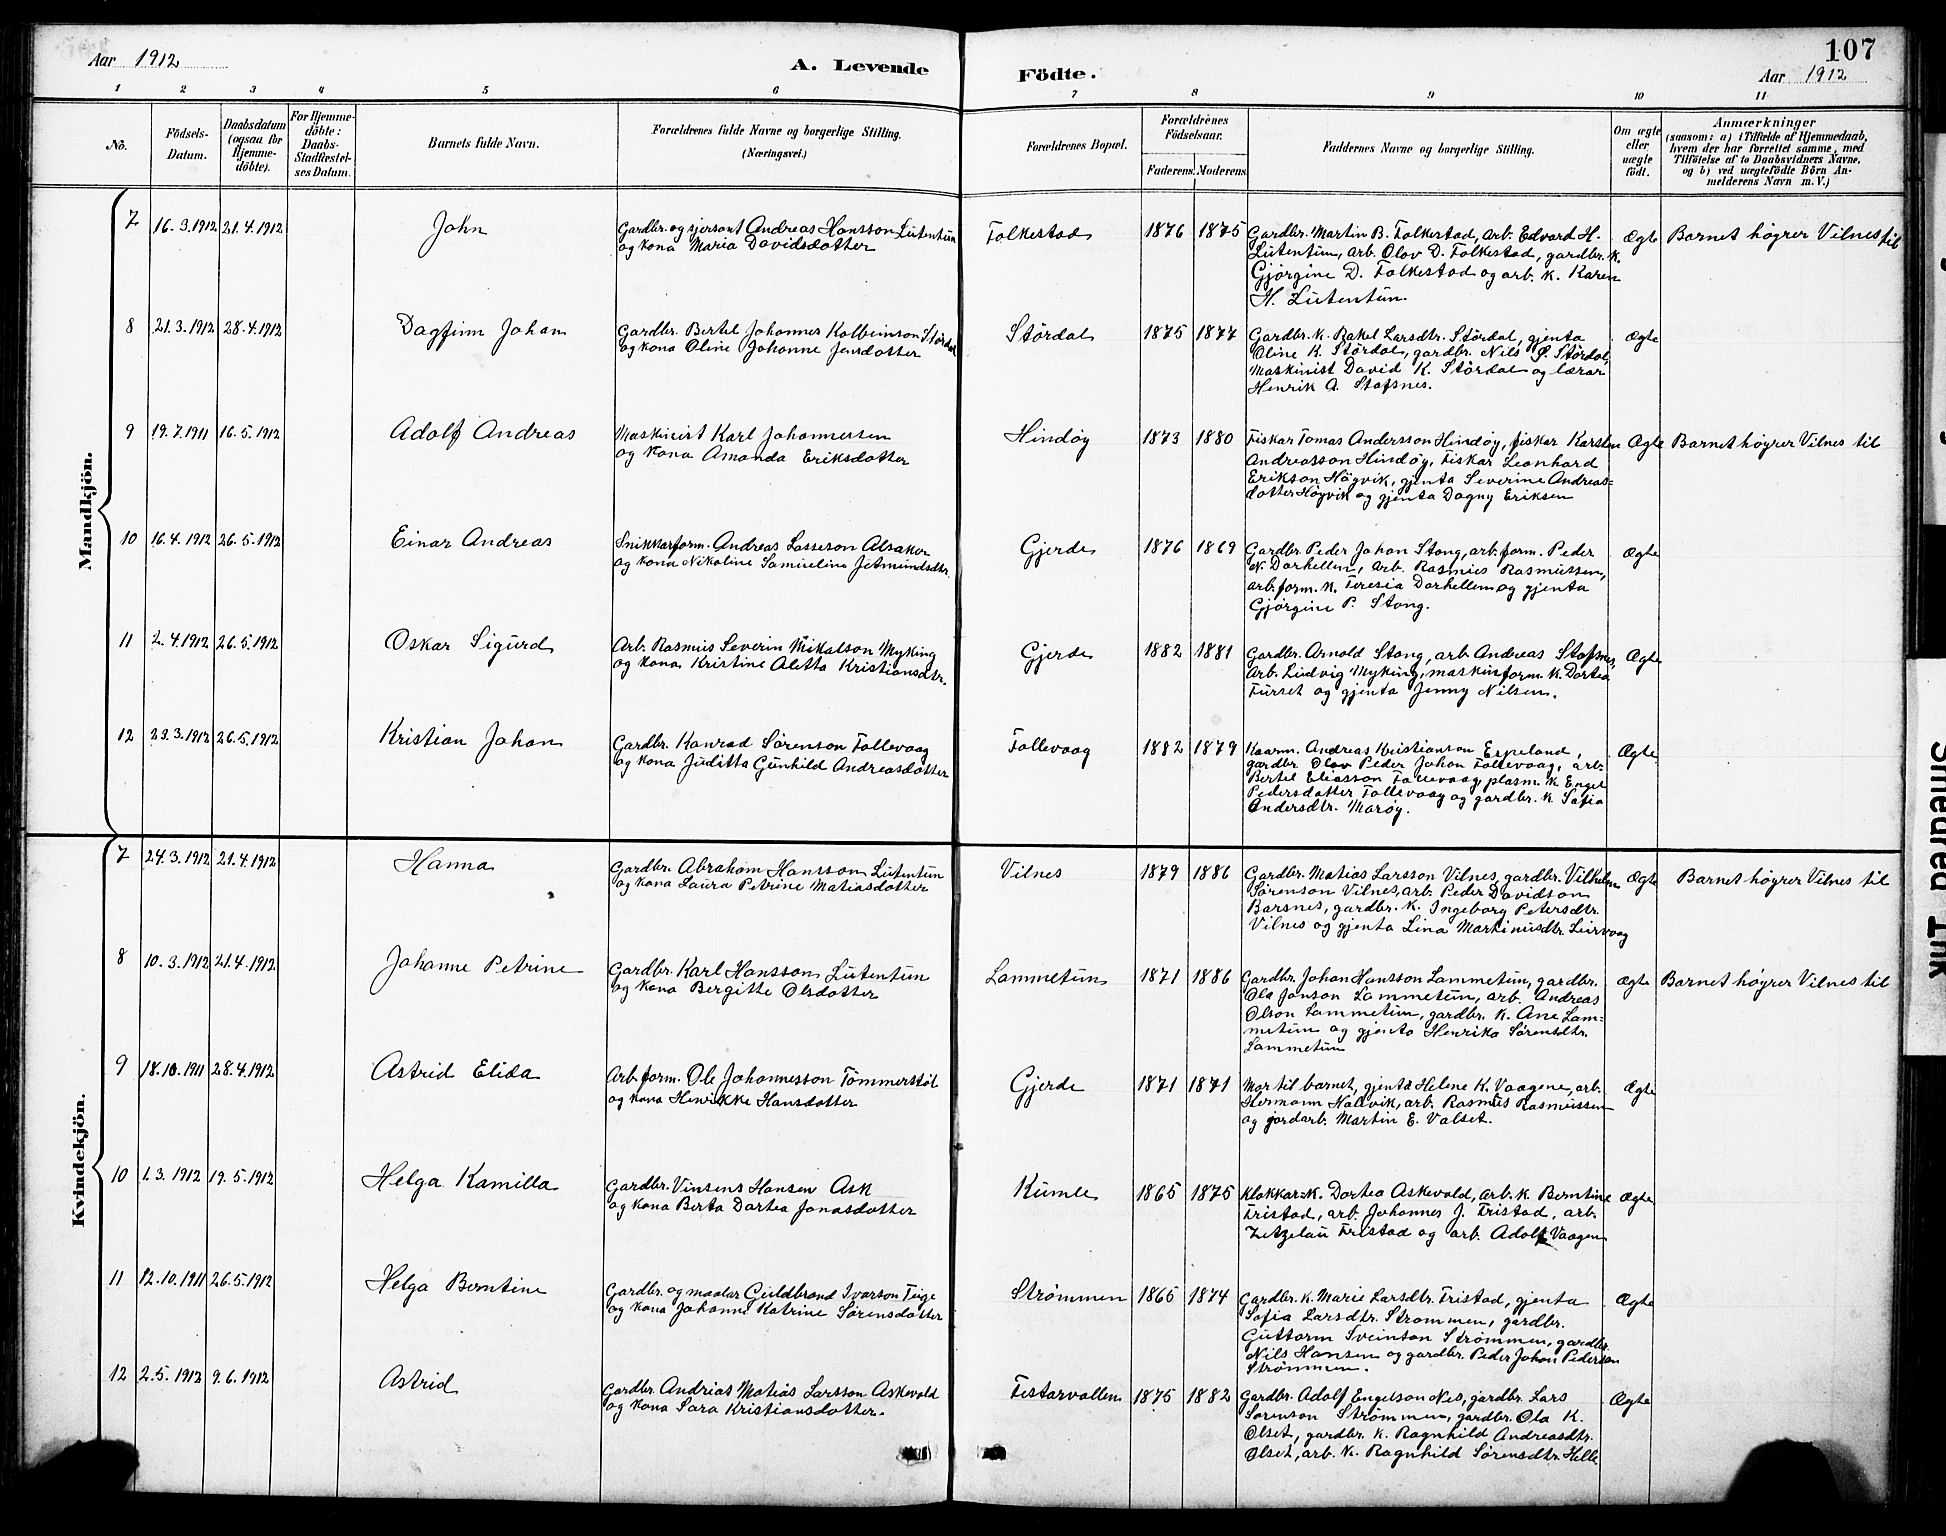 107
Aar 1912
A. Levende Födte.
Aar 1912
1 2 3 4 5 6 7 8 9 10 11
No.
Födsels-Datum.
Daabsdatum (ogsaa for Hjemmedöbte).
For Hjemmedöbte: Daabs-Stadfæstelses Datum.
Barnets fulde Navn.
Forældrenes fulde Navne og borgerlige Stilling.
(Næringsvei.)
Forældrenes Bopæl.
Forældrenes Födselsaar.
Faderens. Moderens.
Faddernes Navne og borgerlige Stilling.
Om ægte eller uægte födt.
Anmærkninger
(saasom: a) i Tilfælde af Hjemmedaab, hvem der har forrettet samme, med Tilföielse af to Daabsvidners Navne, og b) ved uægtefödte Börn Anmelderens Navn m. V.)
Mandkjön.
7 16.3.1912 21.4.1912 John
Gardbr. og sjersant Andreas Hansson Lutentun
og kona Maria Davidsdotter
Folkestad 1876 1875
Gardbr. Martin B. Folkestad, arb. Edvard H.
Lutentun, arb. Olov D. Folkestad, gardbr. k.
Gjørgine D. Folkestad og arb. k. Karen
H. Lutentun.
Ægte Barnet høgrer Vilnes til
8 21.3.1912 28.4.1912 Dagfinn Johan
Gardbr. Bertel Johannes Kolbeinson Stördal
og kona Oline Johanne Jensdotter
Stördal 1875 1877
Gardbr. k. Rakel Larsdtr. Stördal, gjenta
Oline K. Stördal, gardbr. Nils P. Stördal,
Maskinist David K. Stördal og lærar
Henrik A. Stafsnes.
Ægte
9 19.7.1911 16.5.1912 Adolf Andreas
Maskinist Karl Johannessen
og kona Amanda Eriksdotter
Hindöy 1873 1880
Fiskar Tomas Andersson Hindöy, fiskar Karsten
Andreasson Hindöy, Fiskar Leonhard
Erikson Högvik, gjenta Severine Andreas-
dotter Högvik og gjenta Dagny Eriksen
Ægte Barnet høgrer Vilnes til
10 16.4.1912 26.5.1912 Einar Andreas
Snikkarform. Andreas Lasseson Alsaker
og kona Nikoline Samueline Jetmundsdtr.
Gjerde 1876 1869
Gardbr. Peder Johan Stong, arb.form. Peder
N. Darhellen, arb. Rasmus Rasmussen,
arb.form. k. Teresia Darhellen og gjenta
Gjørgine P. Stong.
Ægte
11 2.4.1912 26.5.1912 Oskar Sigurd
Arb. Rasmus Severin Mikalson Myking
og kona Kristine Aletta Kristiansdtr.
Gjerde 1882 1881
Gardbr. Arnold Stong, arb. Andreas Stafsnes,
arb. Ludvig Myking, maskinform. k. Dortea
Furset og gjenta Jenny Nilsen.
Ægte
12 23.3.1912 26.5.1912 Kristian Johan
Gardbr. Konrad Sørenson Follevaag
og kona Juditta Gunhild Andreasdotter
Follevaag 1882 1879
Kaarm. Andreas Kristianson Espeland,
gardbr. Olov Peder Johan Follevaag, arb.
Bertel Eliasson Follevaag, plasm. k. Engel
Pedersdotter Follevaag og gardbr. k. Sofia
Andersdtr. Maröy.
Ægte
Kvindekjön.
7 24.3.1912 21.4.1912 Hanna
Gardbr. Abraham Hansson Lutentun
og kona Laura Petrine Matiasdotter
Vilnes 1879 1886
Gardbr. Matias Larsson Vilnes, gardbr. Vilhelm
Sørenson Vilnes, arb. Peder Davidson
Barsnes, gardbr. k. Ingeborg Petersdtr.
Vilnes og gjenta Lina Martinusdtr. Leirvaag
Ægte Barnet høgrer Vilnes til
8 10.3.1912 21.4.1912 Johanne Petrine
Gardbr. Karl Hansson Lutentun
og kona Bergitte Olsdotter
Lammetun 1871 1886
Gardbr. Johan Hansson Lammetun, gardbr.
Ola Janson Lammetun, arb. Andreas
Olson Lammetun, gardbr. k. Ane Lam-
metun og gjenta Henrika Sørensdtr.
Lammetun
Ægte Barnet høgrer Vilnes til
9 18.10.1911 28.4.1912 Astrid Elida
Arb.form. Ole Johannesson Tömmerstöl
og kona Henrikke Hansdotter
Gjerde 1871 1871
Mor til barnet, gjenta Helene K. Vaagene, arb.
Hermann Hallvik, arb. Rasmus Rasmussen
og jordarb. Martin E. Valset.
Ægte
10 1.3.1912 19.5.1912 Helga Kamilla
Gardbr. Vinsens Hansen Ask
og kona Berta Dortea Jonasdotter
Kumle 1865 1875
Klokkar k. Dortea Askevold, arb. k. Berntine
Fristad, arb. Johannes J. Fristad, arb.
Zetzelau Fristad og arb. Adolf Vaagen
Ægte
11 12.10.1911 26.5.1912 Helga Berntine
Gardbr. og maalar Guldbrand Ivarson Teige
og kona Johanne Katrine Sørensdotter
Strømmen 1865 1874
Gardbr. k. Marie Larsdtr. Fristad, gjenta
Sofia Larsdtr. Strømmen, gardbr.
Guttorm Sveinson Strømmen, gardbr.
Nils Hansen og gardbr. Peder Johan Pederson
Strømmen.
Ægte
12 2.5.1912 9.6.1912 Astrid
Gardbr. Andrias Matias Larsson Askevold
og kona Sara Kristiansdotter.
Festarvollen 1875 1882
Gardbr. Adolf Engelson Nes, gardbr. Lars
Sørenson Strømmen, gardbr. Ola K.
Olset, gardbr. k. Ragnhild Andreasdtr.
Olset, arb. k. Ragnhild Sørensdtr. Helle
Ægte